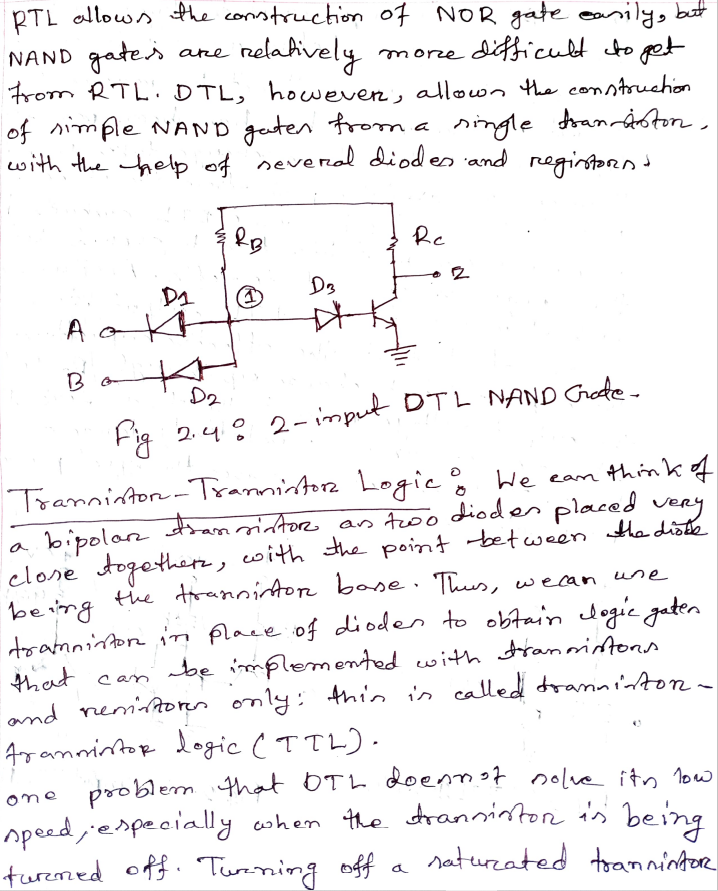 RTL allows the construction of NOR gate easily, but
NAND gates are relatively more difficult to get
from RTL. DTL, however, allows the construction
of simple NAND gates from a single transistor,
with the help of several diodes and registors.
RB
Rc
2
D1
①
D3
A
B
D2
Fig 2.4: 2-input DTL NAND Gate.
Transistor-Transistor Logic: We can think of
a bipolar transistor as two diodes placed very
close together, with the point between the diode
being the transistor base. Thus, we can use
transistor in place of diodes to obtain logic gates
that can be implemented with transistors
and resistors only: this is called transistor-
transistor logic (TTL).
one problem that DTL doesnot solve its low
speed, especially when the transistor is being
turned off. Turning off a saturated transistor